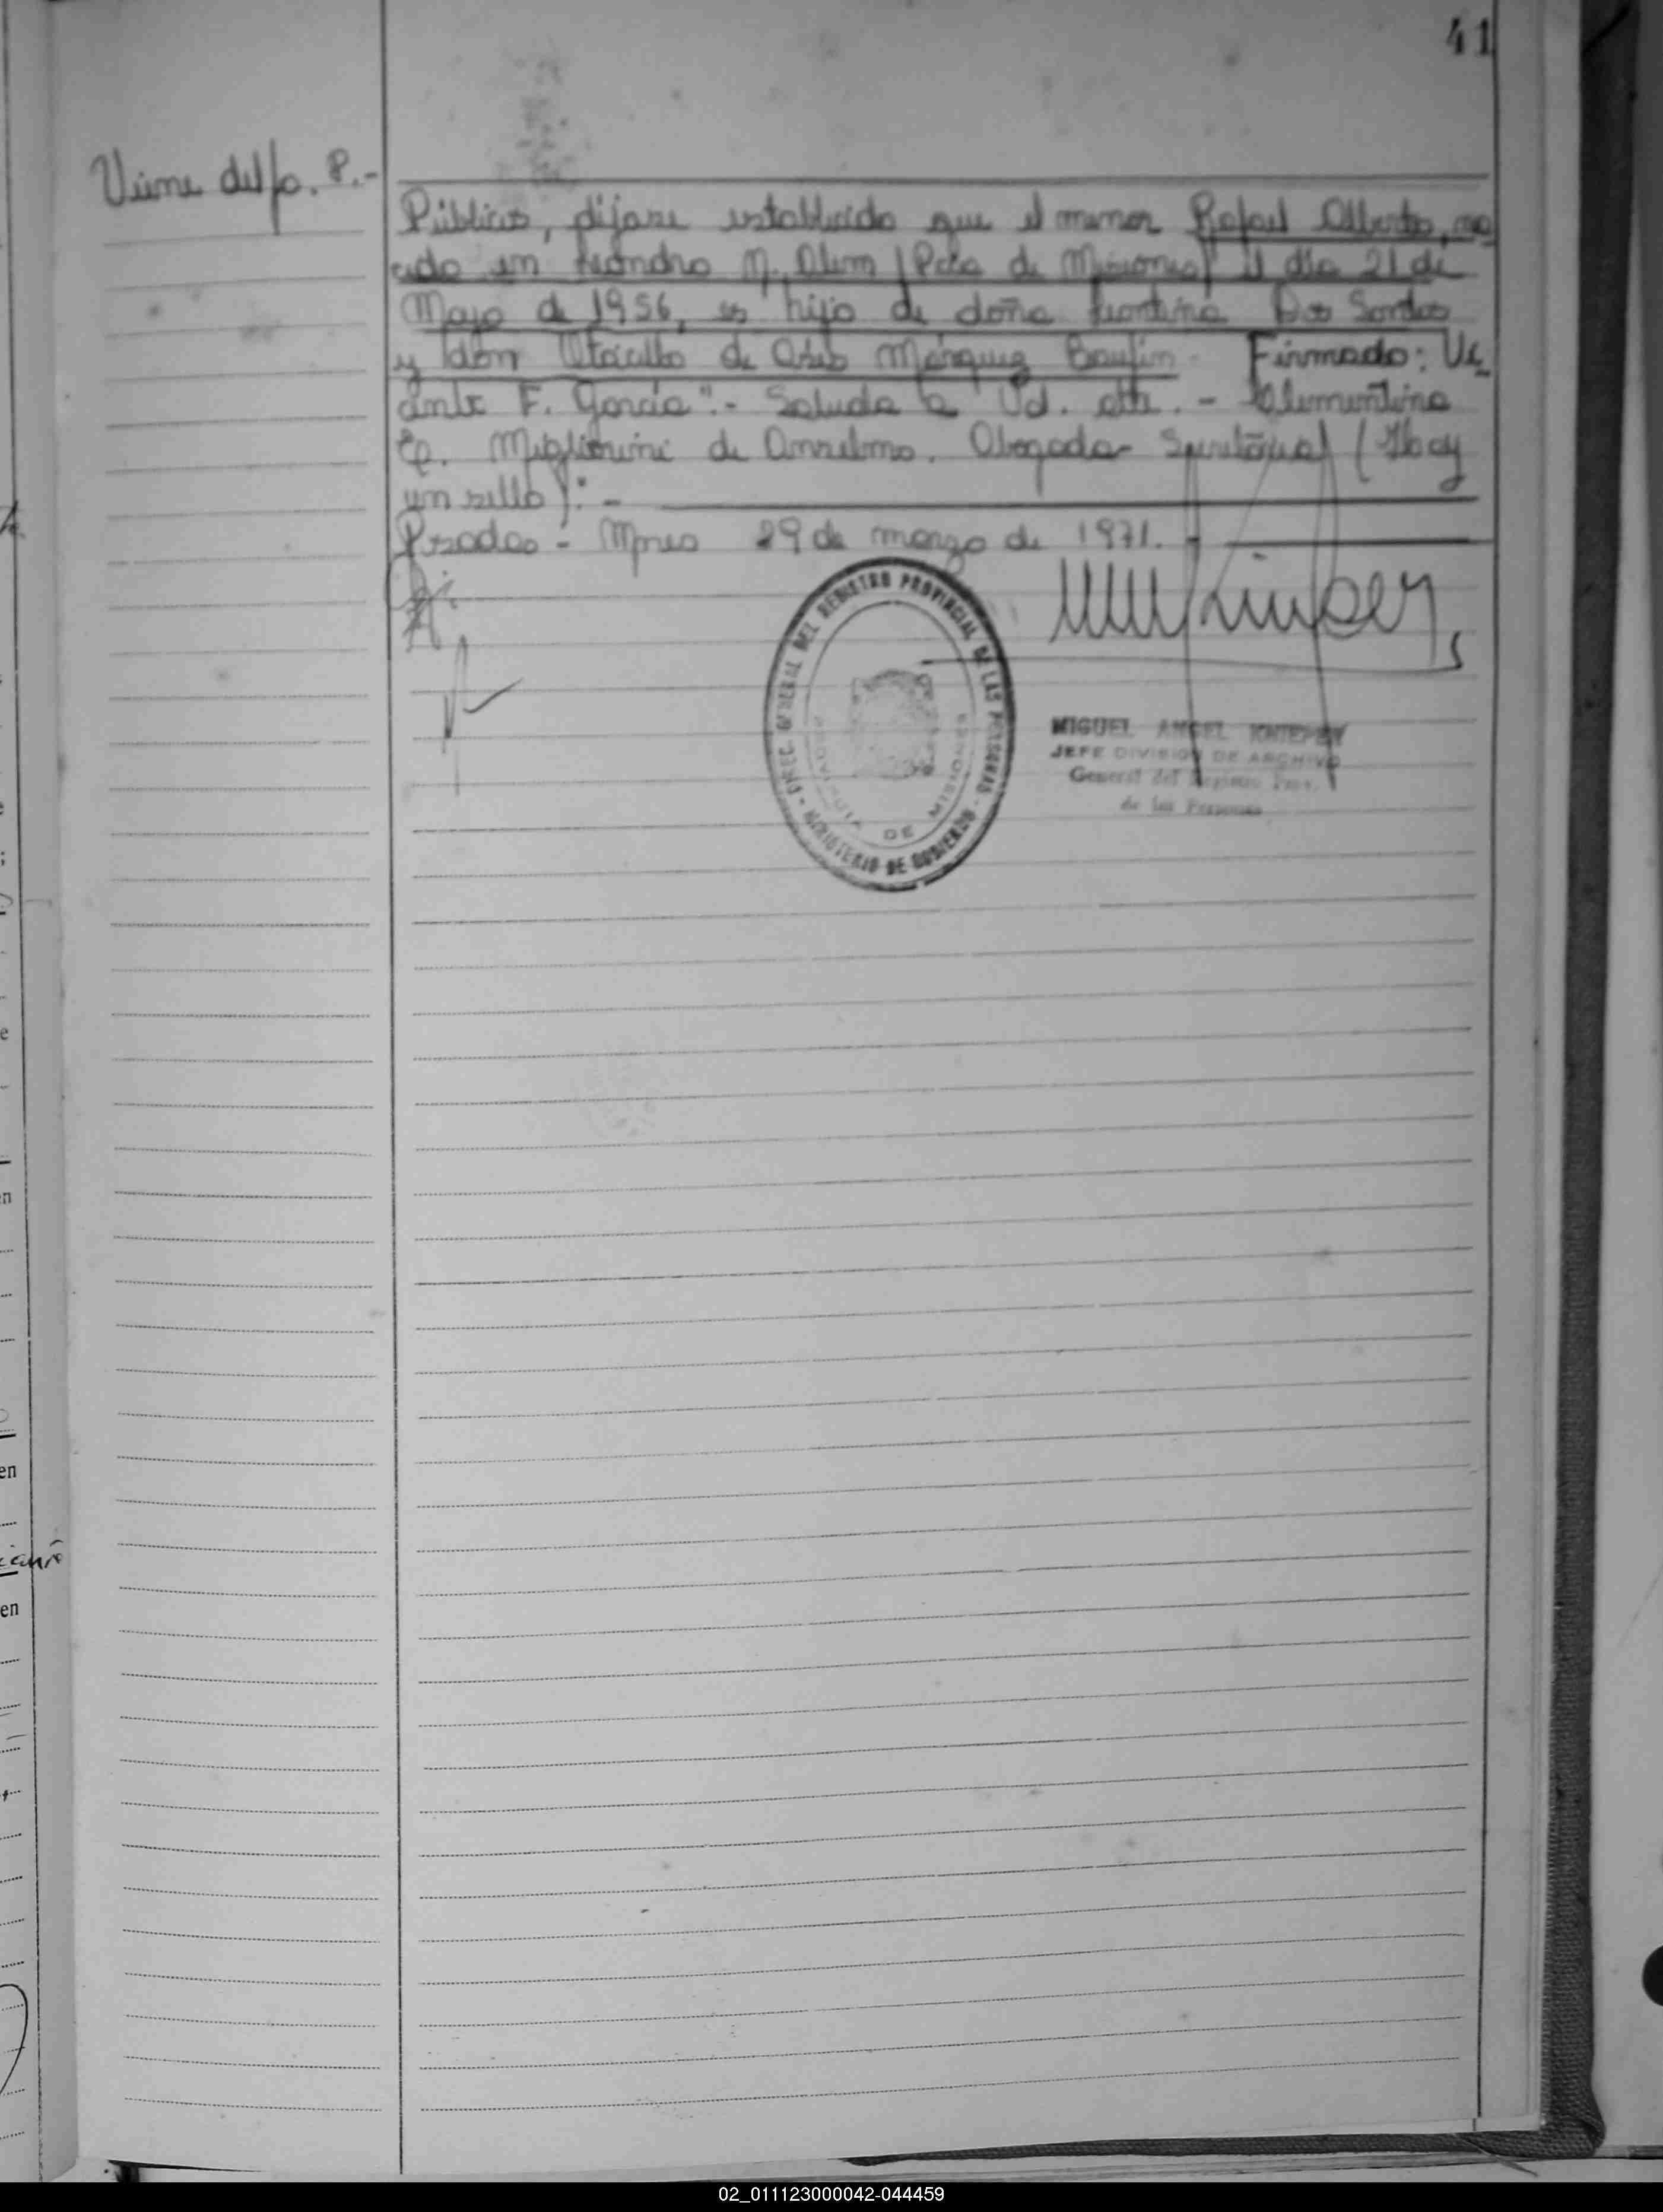 41
Viene del fo. P.-
Públicos, déjase establecido que el menor Rafael Alberto, na
cido en Leandro N. Alem (Pcia de Misiones) el día 21 de
Mayo de 1956, es hijo de doña Leontina Dos Santos
y don de Márquez Firmado: Vi
cente F. García".- Saluda a Ud. atte. - Clementina
E. Migliorini de Anselmo. Abogada- Secretaria (Hay
un sello):-
Psadas - Mnes 29 de marzo de 1971.-
DIREC. GENERAL DEL REGISTRO PROVINCIAL DE LAS PERSONAS - MINISTERIO DE GOBIERNO
PROVINCIA DE MISIONES
MIGUEL ANGEL
JEFE DIVISION DE ARCHIVO
General del Registro Prov.
de las Personas
en
en
en
02_011123000042-044459